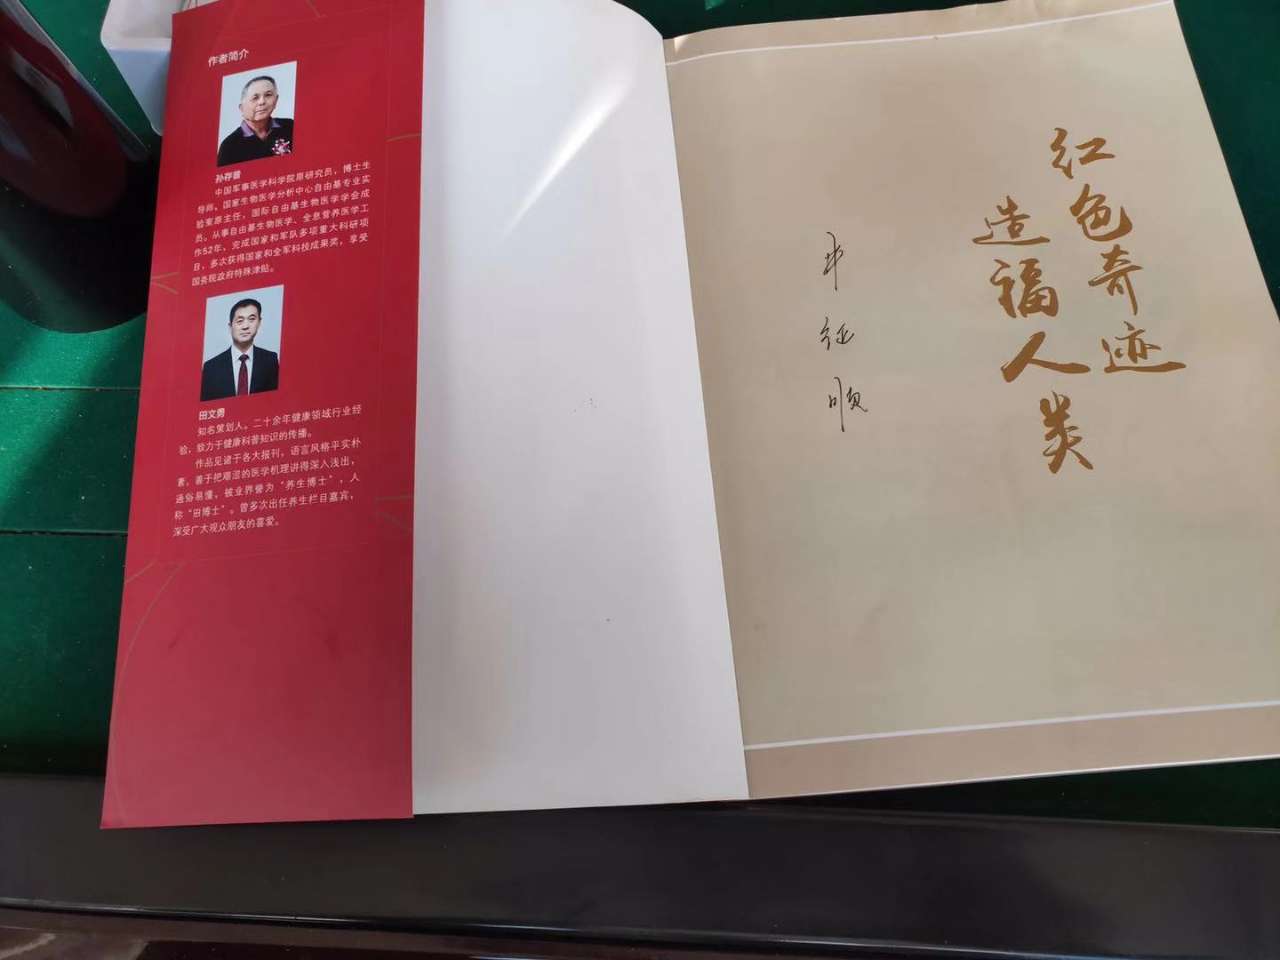 作者简介
孙存普
中国军事医学科学院原研究员，博士生
导师。国家生物医学分析中心自由基专业实
验室原主任，国际自由基生物医学学会成
员。从事自由基生物医学、全息营养医学工
作52年，完成国家和军队多项重大科研项
目，多次获得国家和全军科技成果奖，享受
国务院政府特殊津贴。
田文勇
知名策划人。二十余年健康领域行业经
验，致力于健康科普知识的传播。
作品见诸于各大报刊，语言风格平实朴
素，善于把艰涩的医学机理讲得深入浅出，
通俗易懂，被业界誉为“养生博士”，人
称“田博士”。曾多次出任养生栏目嘉宾，
深受广大观众朋友的喜爱。
红色奇迹
造福人类
征顺